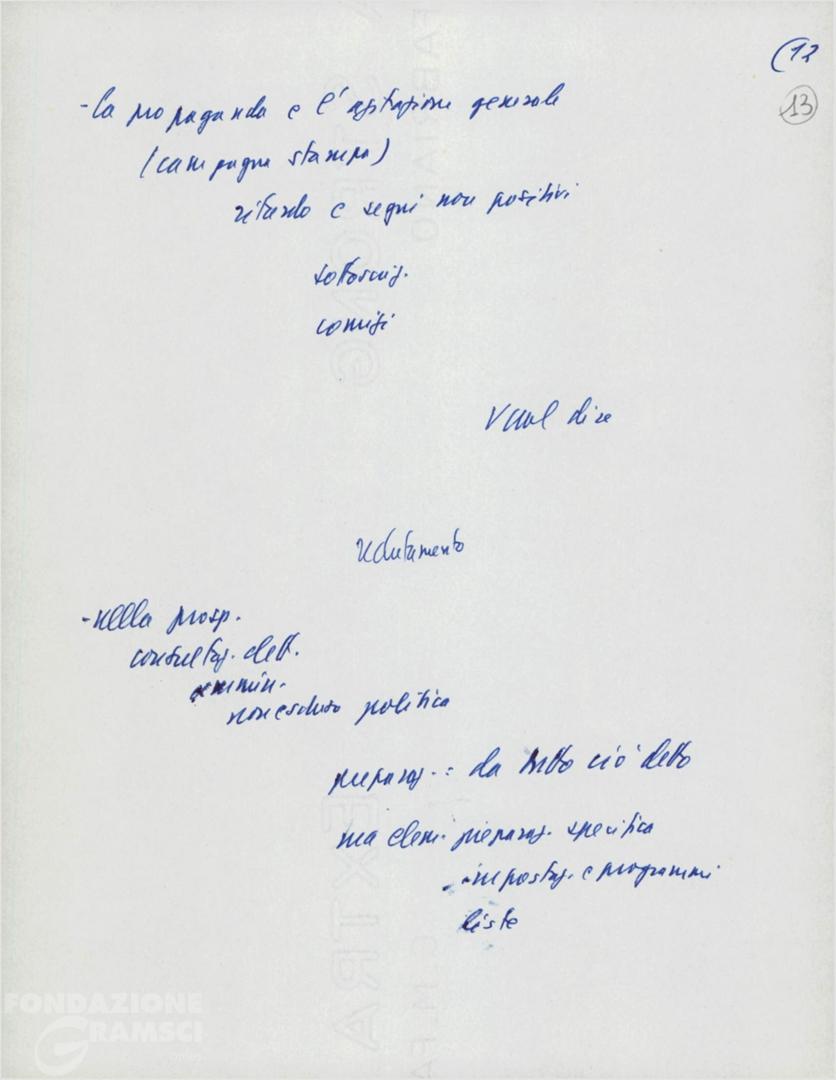 (12
13
- la propaganda e l'agitazione generale
(campagna stampa)
ritardo e segni non positivi
sottoscriz.
comizi
Vuol dire
reclutamento
- nella prosp.
consultaz. elett.
ammin.
non esclusa politica
preparaz.: da tutto ciò detto
ma elem. preparaz. specifica
- impostaz. e programmi
liste
FONDAZIONE
GRAMSCI